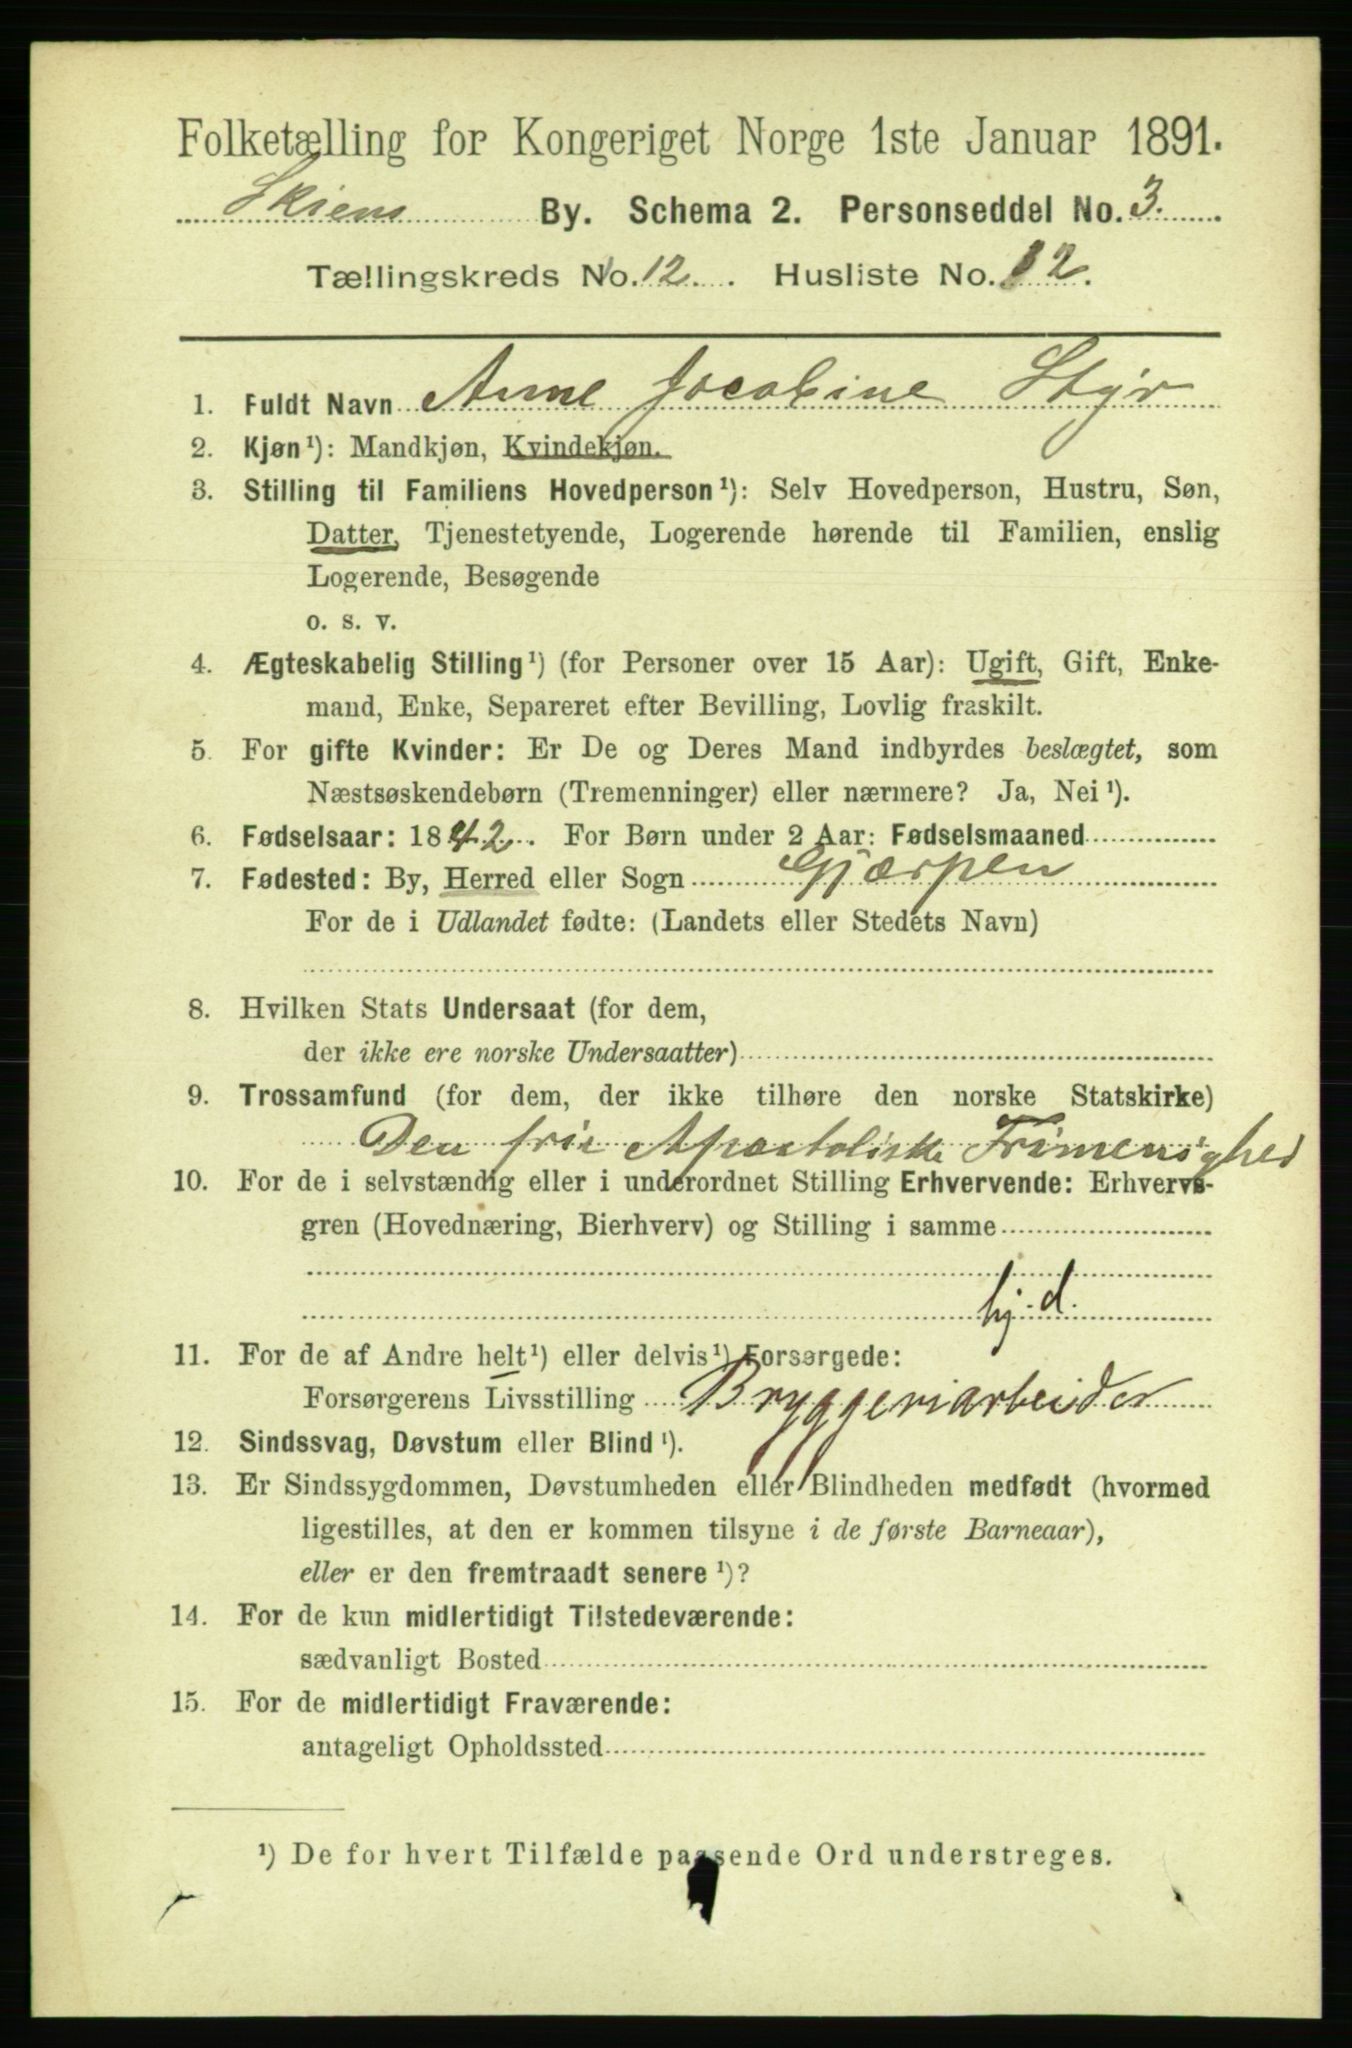 Folketælling for Kongeriget Norge 1ste Januar 1891.
Skiens By. Schema 2. Personseddel No. 3.
Tællingskreds No. 12. Husliste No. 12.
1. Fuldt Navn Anne Jacobine Styr
2. Kjøn¹): Mandkjøn, Kvindekjøn.
3. Stilling til Familiens Hovedperson¹): Selv Hovedperson, Hustru, Søn,
Datter, Tjenestetyende, Logerende hørende til Familien, enslig
Logerende, Besøgende
o. s. v.
4. Ægteskabelig Stilling¹) (for Personer over 15 Aar): Ugift, Gift, Enke-
mand, Enke, Separeret efter Bevilling, Lovlig fraskilt.
5. For gifte Kvinder: Er De og Deres Mand indbyrdes beslægtet, som
Næstsøskendebørn (Tremenninger) eller nærmere? Ja, Nei¹).
6. Fødselsaar: 1842. For Børn under 2 Aar: Fødselsmaaned
7. Fødested: By, Herred eller Sogn Gjærpen
For de i Udlandet fødte: (Landets eller Stedets Navn)
8. Hvilken Stats Undersaat (for dem,
der ikke ere norske Undersaatter)
9. Trossamfund (for dem, der ikke tilhøre den norske Statskirke)
Den frie Apostoliske Frimenighed
10. For de i selvstændig eller i underordnet Stilling Erhvervende: Erhvervs-
gren (Hovednæring, Bierhverv) og Stilling i samme
hj. d.
11. For de af Andre helt¹) eller delvis¹) Forsørgede:
Forsørgerens Livsstilling Bryggeriarbeider
12. Sindssvag, Døvstum eller Blind¹).
13. Er Sindssygdommen, Døvstumheden eller Blindheden medfødt (hvormed
ligestilles, at den er kommen tilsyne i de første Barneaar),
eller er den fremtraadt senere¹)?
14. For de kun midlertidigt Tilstedeværende:
sædvanligt Bosted
15. For de midlertidigt Fraværende:
antageligt Opholdssted
¹) De for hvert Tilfælde passende Ord understreges.